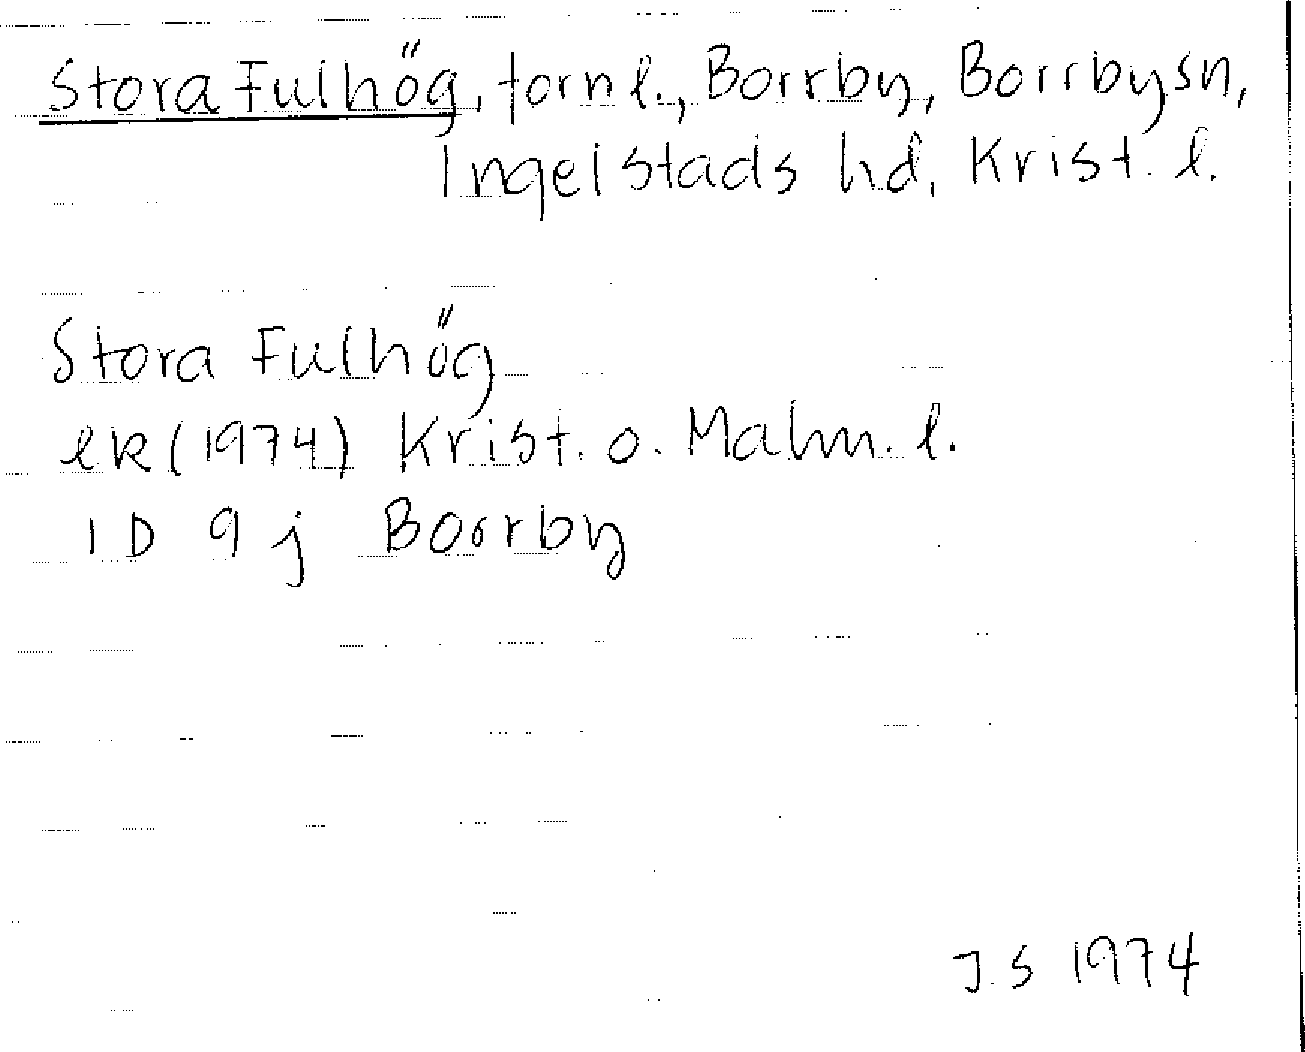 Stora Fulhög, fornl., Borrby, Borrby sn,
Ingelstads hd, Krist. l.
Stora Fulhög
ek (1974) Krist. o. Malm. l.
1D 9j Borrby
J.S 1974